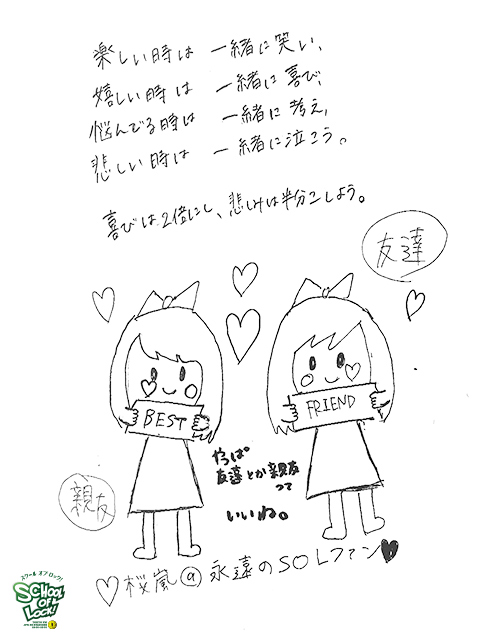 楽しい時は 一緒に笑い、
嬉しい時は 一緒に喜び、
悩んでる時は 一緒に考え、
悲しい時は 一緒に泣こう。
喜びは2倍にし、悲しみは半分こしよう。
友達
BEST
FRIEND
やっぱ
友達とか親友
って
いいね。
親友
♡桜嵐@永遠のSOLファン♥
スクールオブロック!
SCHOOL
OF
LOCK!